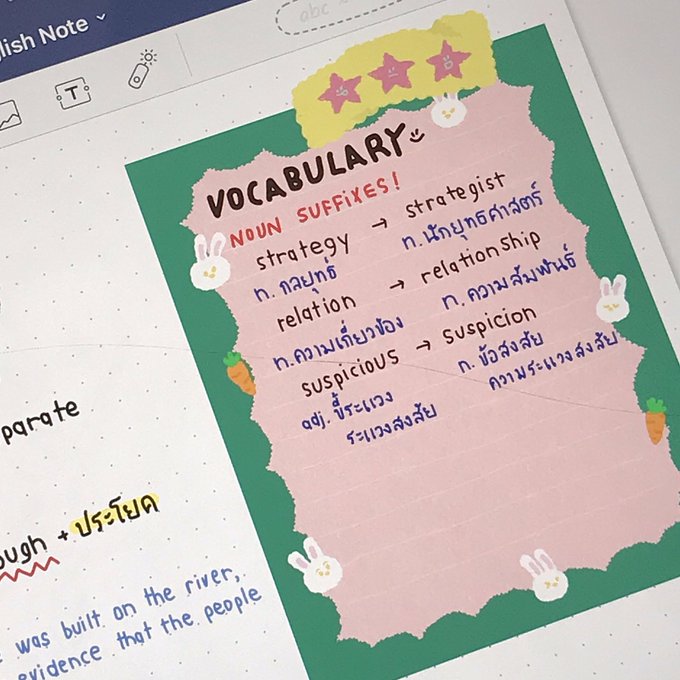 lish Note
abc
T
VOCABULARY
NOUN SUFFIXES!
strategy → strategist
n. กลยุทธ์ n. นักยุทธศาสตร์
relation → relationship
n. ความเกี่ยวข้อง n. ความสัมพันธ์
suspicious → suspicion
adj. ขี้ระแวง n. ข้อสงสัย
ระแวงสงสัย ความระแวงสงสัย
parate
ough + ประโยค
was built on the river,
evidence that the people